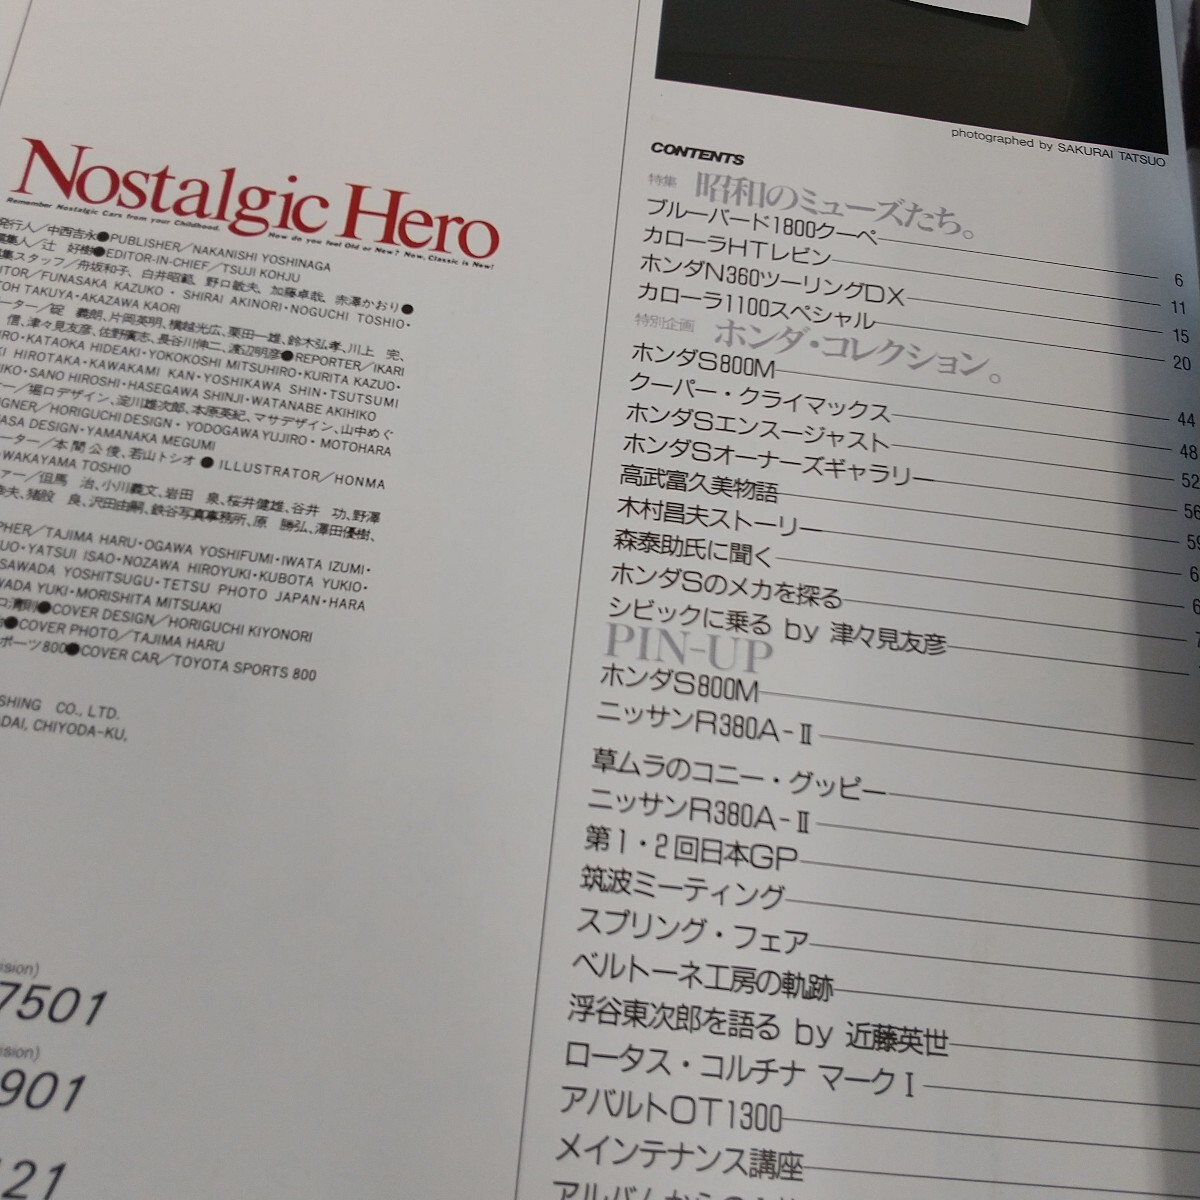 Nostalgic Hero
Remember Nostalgic Cars from your Childhood.
How do you feel Old or New? Now, Classic is New!
発行人／中西吉永●PUBLISHER／NAKANISHI YOSHINAGA
編集人／辻 好樹●EDITOR-IN-CHIEF／TSUJI KOHJU
集スタッフ／舟坂和子、白井昭範、野口敏夫、加藤卓哉、赤澤かおり●
ITOR／FUNASAKA KAZUKO・SHIRAI AKINORI・NOGUCHI TOSHIO・
TOH TAKUYA・AKAZAWA KAORI
ーター／碇 義朗、片岡英明、横越光広、栗田一雄、鈴木弘孝、川上 完、
信、津々見友彦、佐野實志、長谷川伸二、渡辺明彦●REPORTER／IKARI
IRO・KATAOKA HIDEAKI・YOKOKOSHI MITSUHIRO・KURITA KAZUO・
KI HIROTAKA・KAWAKAMI KAN・YOSHIKAWA SHIN・TSUTSUMI
IKO・SANO HIROSHI・HASEGAWA SHINJI・WATANABE AKIHIKO
ー／堀口デザイン、淀川雄次郎、本原英紀、マサデザイン、山中めぐ
IGNER／HORIGUCHI DESIGN・YODOGAWA YUJIRO・MOTOHARA
ASA DESIGN・YAMANAKA MEGUMI
ーター／本間公俊、若山トシオ●ILLUSTRATOR／HONMA
・WAKAYAMA TOSHIO
ァー／但馬 治、小川義文、岩田 泉、桜井健雄、谷井 功、野澤
幸夫、猪股 良、沢田由嗣、鉄谷写真事務所、原 勝弘、澤田優樹、
PHER／TAJIMA HARU・OGAWA YOSHIFUMI・IWATA IZUMI・
UO・YATSUI ISAO・NOZAWA HIROYUKI・KUBOTA YUKIO・
SAWADA YOSHITSUGU・TETSU PHOTO JAPAN・HARA
WADA YUKI・MORISHITA MITSUAKI
口清則●COVER DESIGN／HORIGUCHI KIYONORI
●COVER PHOTO／TAJIMA HARU
ポーツ800●COVER CAR／TOYOTA SPORTS 800
SHING CO., LTD.
DAI, CHIYODA-KU,
ision)
7501
ision)
901
121
photographed by SAKURAI TATSUO
CONTENTS
特集 昭和のミューズたち。
ブルーバード1800クーペ 6
カローラHTレビン 11
ホンダN360ツーリングDX 15
カローラ1100スペシャル 20
特別企画 ホンダ・コレクション。
ホンダS800M 44
クーパー・クライマックス 48
ホンダSエンスージャスト 52
ホンダSオーナーズギャラリー 56
高武富久美物語 59
木村昌夫ストーリー 6
森泰助氏に聞く 6
ホンダSのメカを探る
シビックに乗る by 津々見友彦
PIN-UP
ホンダS800M
ニッサンR380A-Ⅱ
草ムラのコニー・グッピー
ニッサンR380A-Ⅱ
第1・2回日本GP
筑波ミーティング
スプリング・フェア
ベルトーネ工房の軌跡
浮谷東次郎を語る by 近藤英世
ロータス・コルチナ マークⅠ
アバルトOT1300
メインテナンス講座